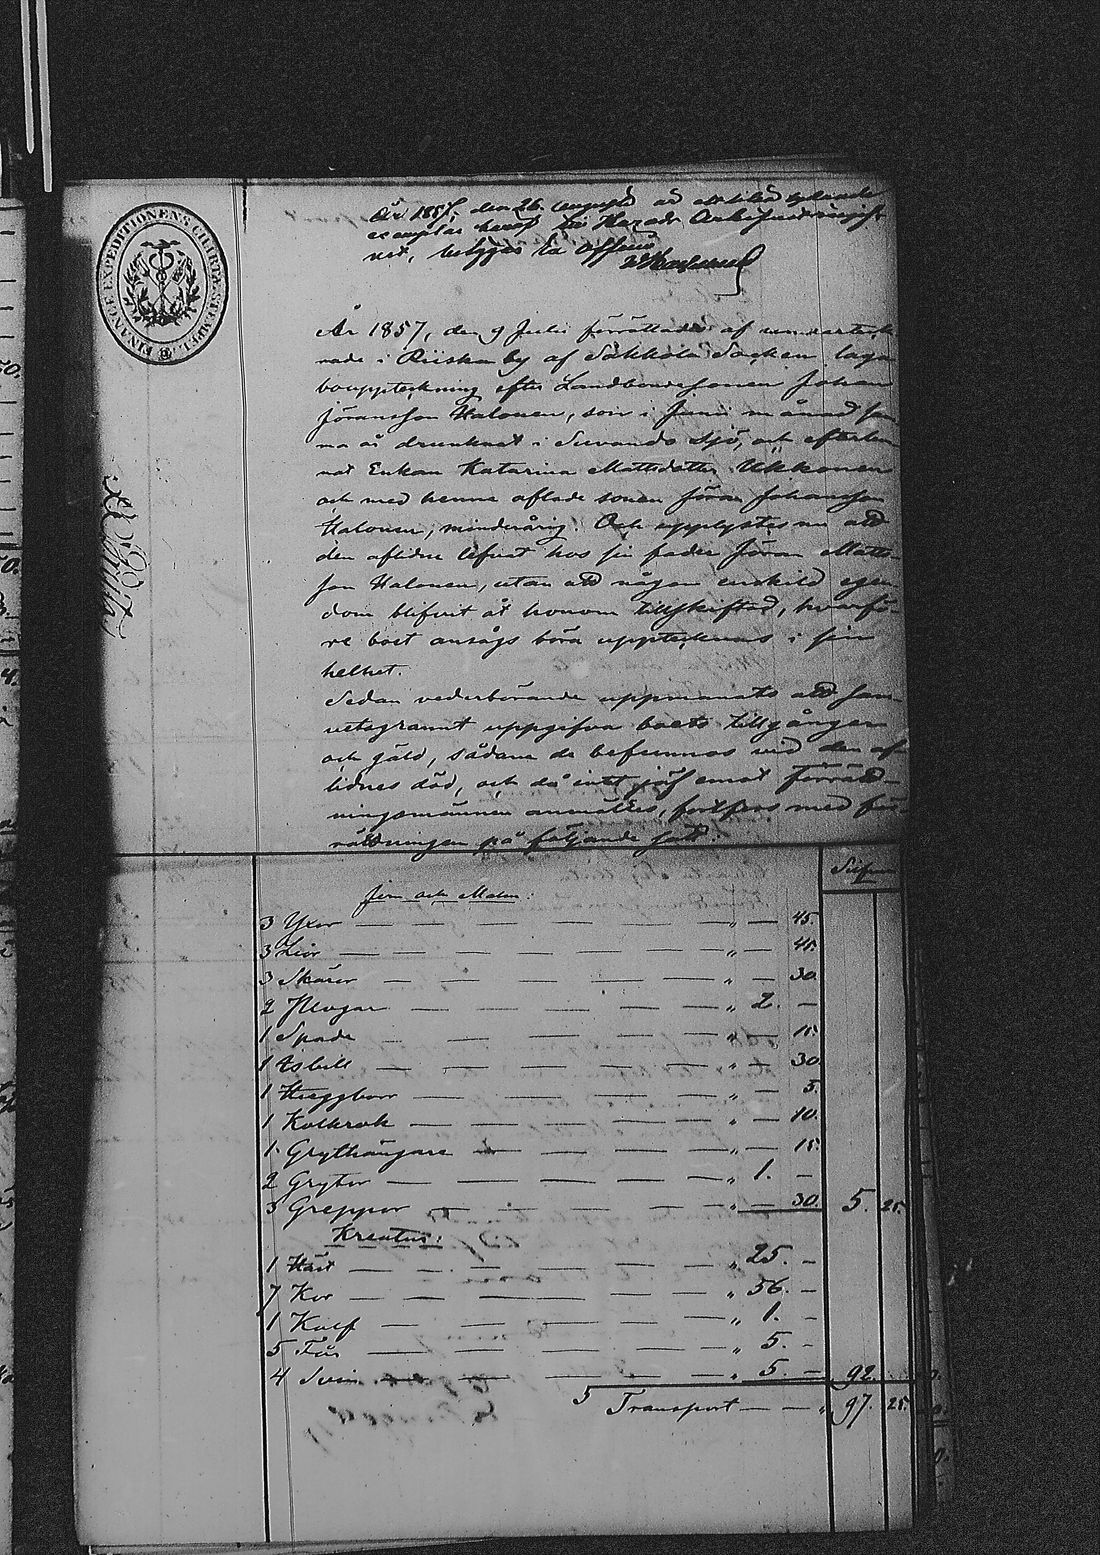 FINANCE EXPEDITIONENS CHARTÆ STEMPEL
År 1857, den 26 Augusti ad ett lika lydande
exemplar häraf
vet, betygar Ex officio
År 1857, den 9 Juli förrättades af underteck-
nade i Riiska by af Sakkola Socken laga
bouppteckning efter Landbondesonen Johan
Jöransson Halonen, som i Junii månad sam
ma år drunknat i Suvando sjö, och efterlem
nat Enkan Katarina Mattsdotter Ukkonen
och med henne aflade sonen Jöran Johansson
Halonen, minderårig. Och upplystes nu att
den aflidne lefvat hos sin fader Jöran Matts-
son Halonen, utan att någon enskild egen
dom blifvit åt honom tillskiftad, hvarfö-
re boet ansågs böra upptecknas i sin
helhet.
Sedan vederbörande uppmanats att sam
vetsgrannt uppgifva boets tillgångar
och gäld, sådane de befunnos vid den af
lidnes död, och då intet jäf emot förrätt-
ningsmännen anmältes, fortfors med för
rättningen på följande sätt:
Silfver
Jern och Malm:
3 Yxor — — — — — " — 45.
3 Liar — — — — — " — 45.
3 Skäror — — — — — " — 30.
2 Plogar — — — — — " 2. —
1 Spade — — — — — " — 15.
1 Isbill — — — — — " — 30
1 Huggborr — — — — — " — 5.
1 Kolkrok — — — — — " — 10.
1 Grythängare — — — — — " — 15.
2 Grytor — — — — — " 1. —
3 Greppor — — — — — " — 30. 5. 25.
Kreatur:
1 Häst — — — — — " 25. —
7 Kor — — — — — " 56. —
1 Kalf — — — — — " 1. —
5 Får — — — — — " 5. —
4 Svin — — — — — " 5. — 92. —
Transport — — " 97. 25.